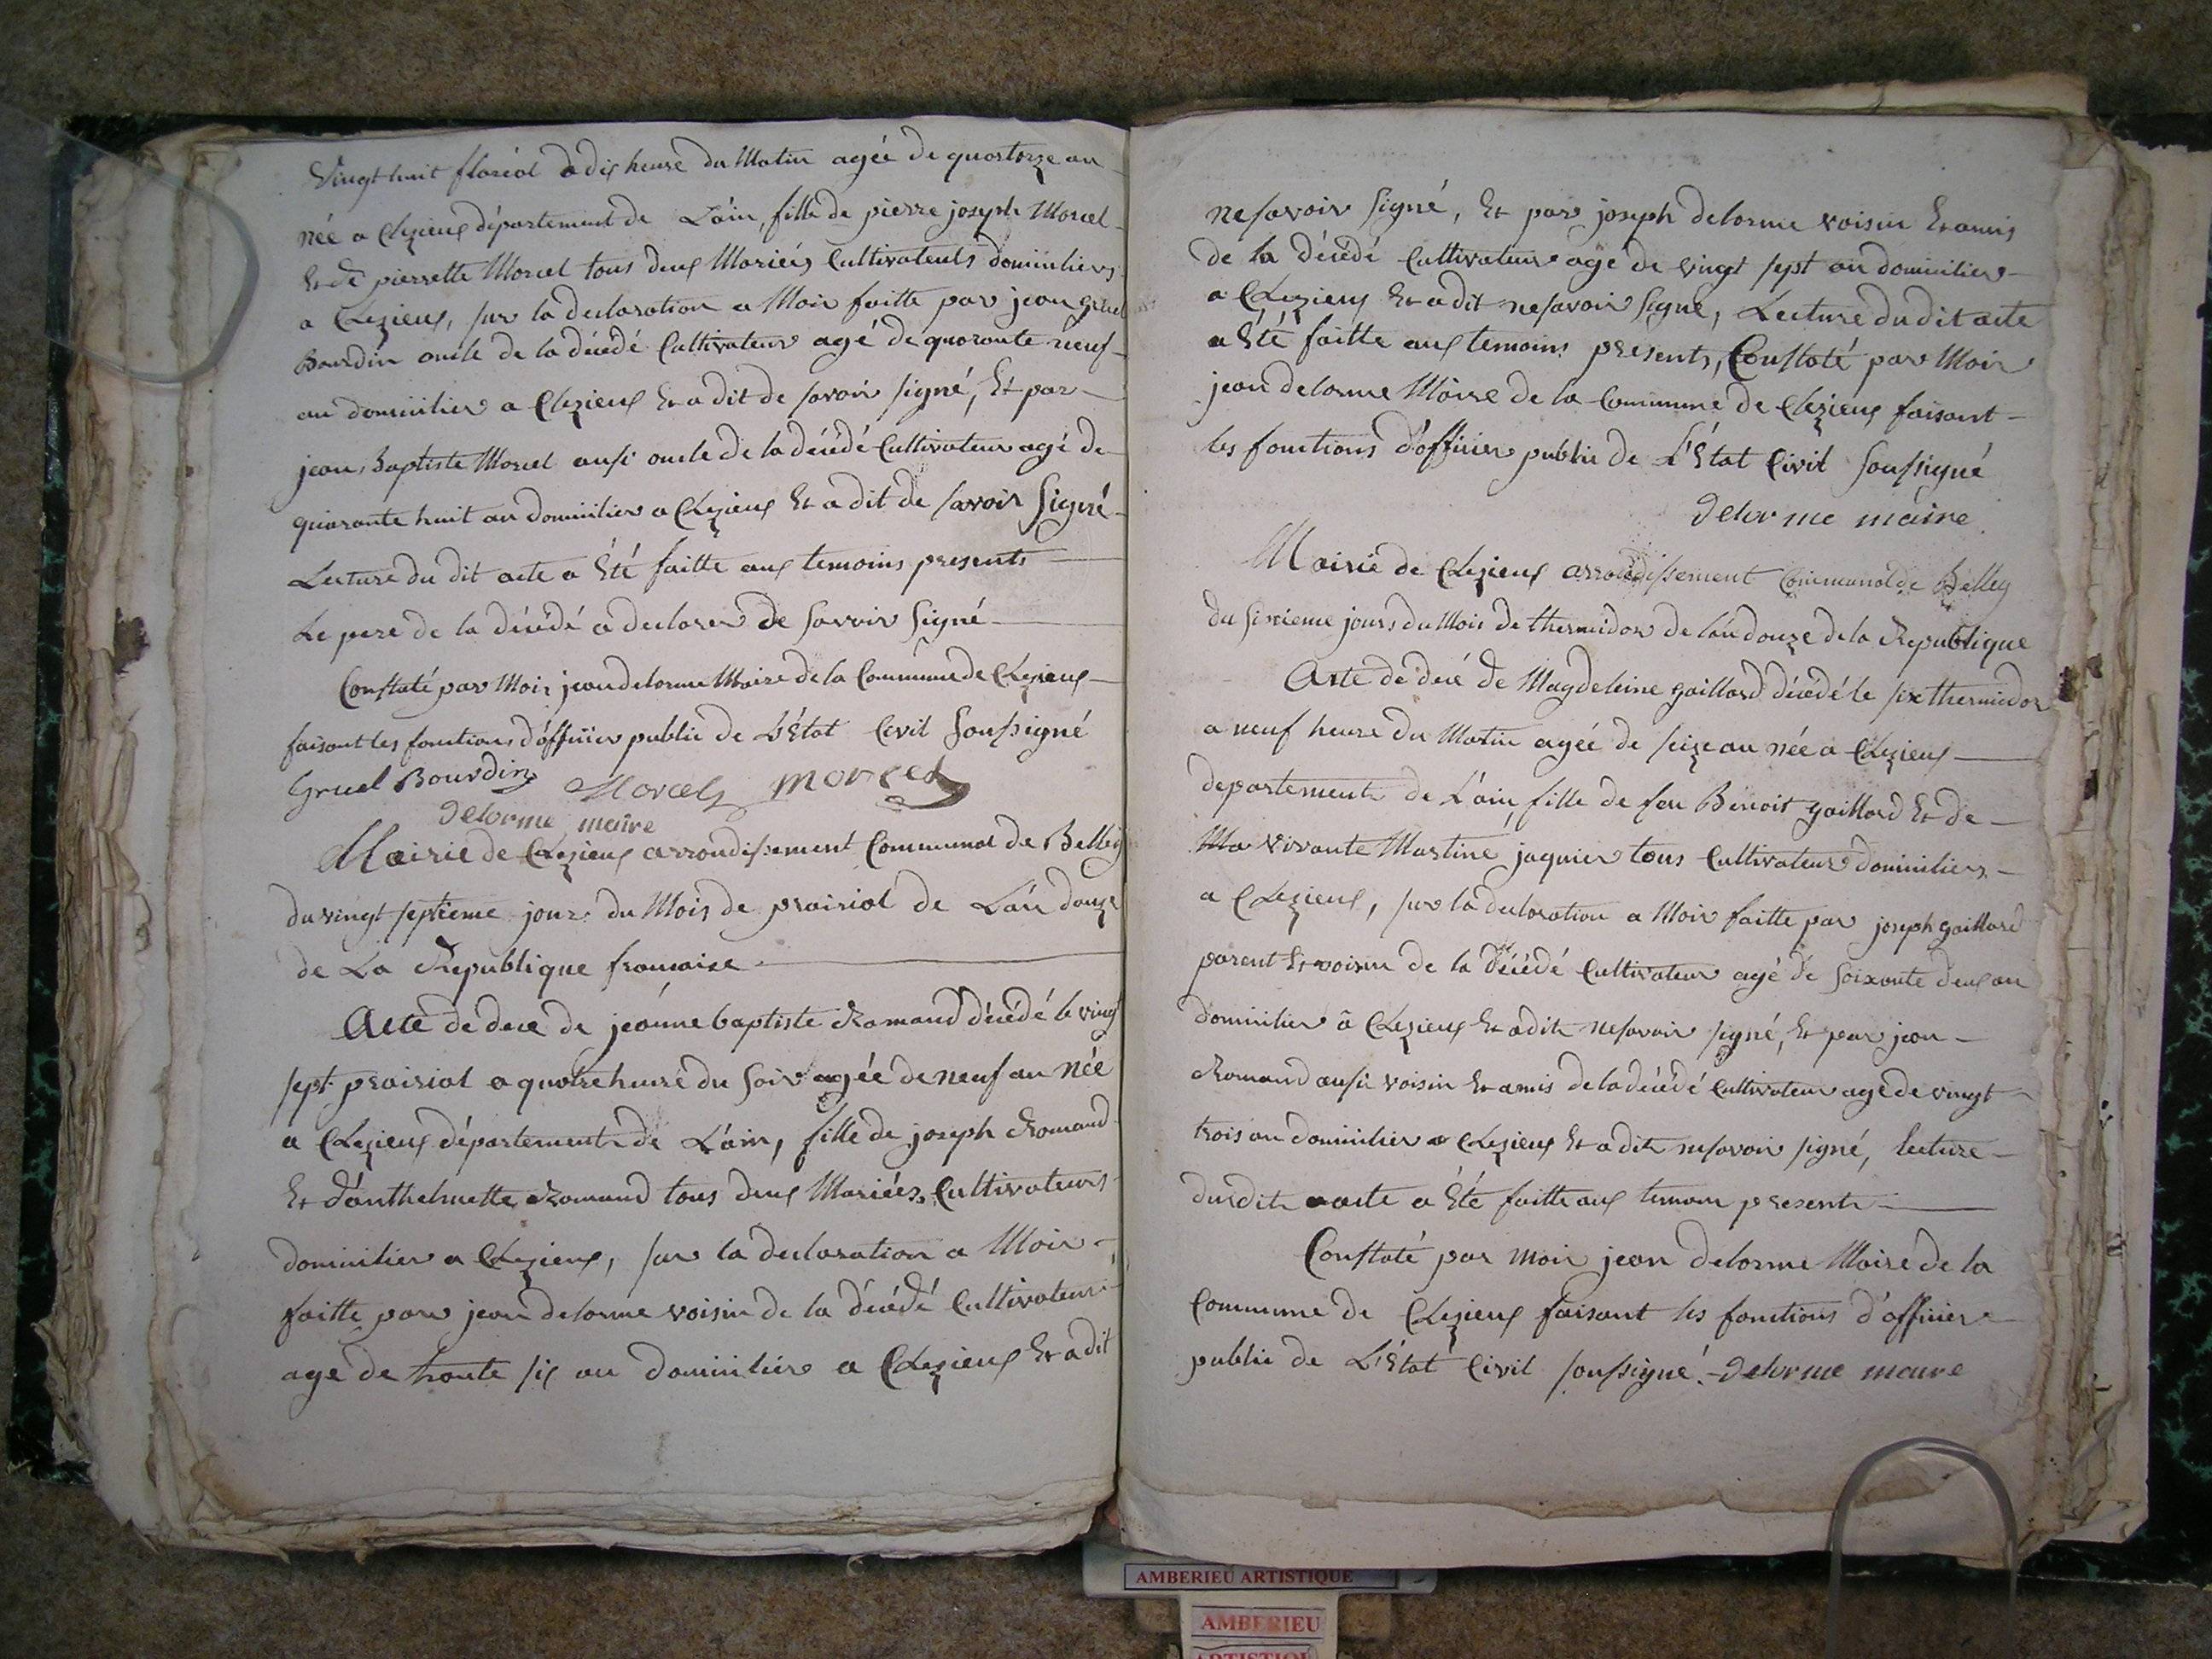 Vingt huit floréal a dix heure du Matin agée de quatorze an
née a Cleyzieux département de L'ain, fille de pierre joseph Morcel
Et de pierrette Morcel tous deux Mariés Cultivateurs domiciliers
a Cleyzieux, sur la declaration a Moir faitte par jean gruel
Bourdin oncle de la décédé Cultivateur agé de quarante neuf
an domicilier a Cleyzieux Et a dit de savoir signé, Et par
jean, Baptiste Morcel ausi oncle de la décédé Cultivateur agé de
quarante huit an domicilier a Cleyzieux Et a dit de savoir Signé
Lecture du dit acte a Été faitte aux temoins presents
Le pere de la décédé a declarer de savoir Signé
Constaté par Moir jean delorme Maire de la Commune de Cleyzieux
faisant les fonctions d'officier public de L'Etat Civil Soussigné
Gruel Bourdin Morcel morcel
Delorme maire
Mairie de Cleyzieux arrondissement Communal de Belley
du vingt septieme jour du Mois de prairial de L'an douze
de La Republique francaise
Acte de dece de jeanne baptiste Romand décédé le vingt
sept prairial a quatre heure du Soir agée de neuf an née
a Cleyzieux département de L'ain, fille de joseph Romand
Et d'anthelmette Romand tous deux Mariés Cultivateurs
domicilier a Cleyzieux, sur la declaration a Moir
faitte par jean delorme voisin de la décédé Cultivateur
agé de trente six an domicilier a Cleyzieux Et a dit
ne savoir Signé, Et par joseph delorme voisin Et amis
de la décédé Cultivateur agé de vingt sept an domicilier
a Cleyzieux Et a dit ne savoir Signé, Lecture du dit acte
a Été faitte aux temoins presents, Constaté par Moir
jean delorme Maire de la Commune de Cleyzieux faisant
les fonctions d'officier public de L'Etat Civil Soussigné
Delorme maire
Mairie de Cleyzieux arrondissement Communal de Belley
du sixieme jours du Mois de thermidor de l'an douze de la Republique
Acte de decé de Magdeleine gaillard décédé le six thermidor
a neuf heure du Matin agée de seize an née a Cleyzieux
departement de L'ain, fille de feu Benoit gaillard Et de
Ma vivante Martine jaquier tous Cultivateur domiciliers
a Cleyzieux, sur la declaration a Moir faitte par joseph gaillard
parent Et voisin de la décédé Cultivateur agé de soixante deux an
domicilier a Cleyzieux Et a dit ne savoir signé, Et par jean
Romand ausi voisin Et amis de la décédé Cultivateur agé de vingt
trois an domicilier a Cleyzieux Et a dit ne savoir signé, lecture
du dit acte a Été faitte aux temoin present
Constaté par moir jean delorme Maire de la
Commune de Cleyzieux faisant les fonctions d'officier
public de L'Etat Civil soussigné. Delorme maire
AMBERIEU ARTISTIQUE
AMBERIEU
ARTISTIQUE